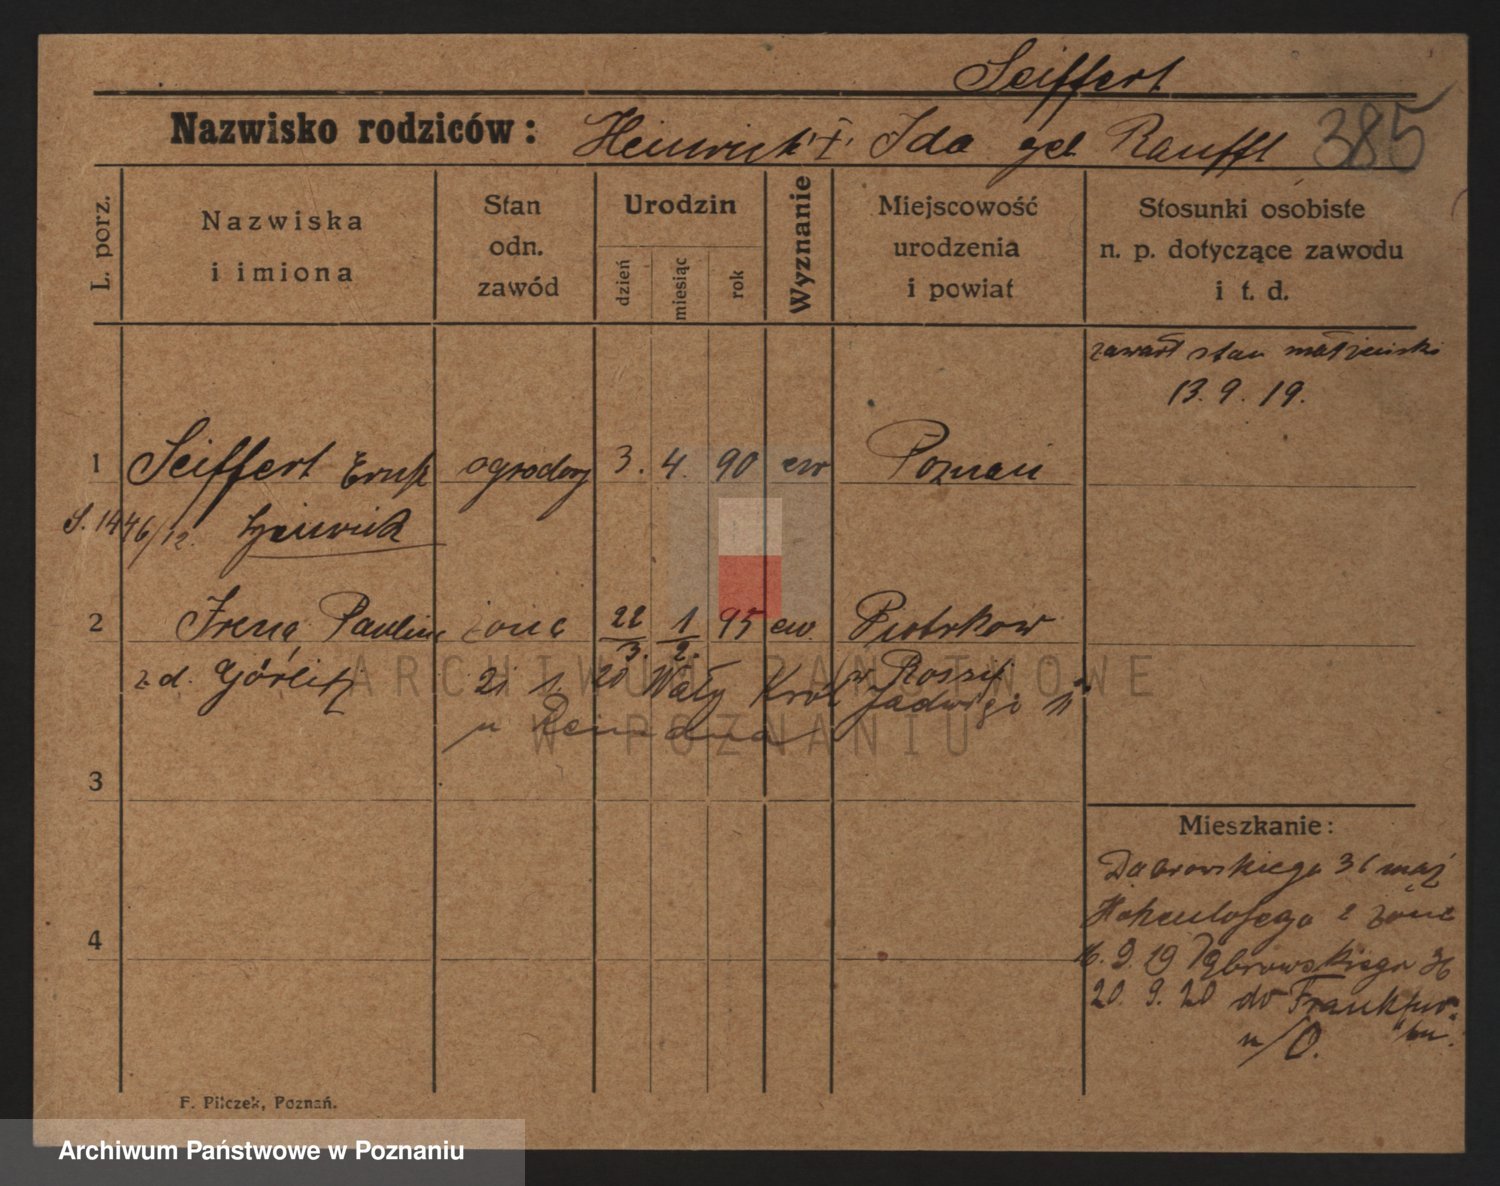 Seiffert
Nazwisko rodziców: Heinrich I. Ida geb Rauffl 385
L. porz.
Nazwiska
i imiona
Stan
odn.
zawód
Urodzin
dzień
miesiąc
rok
Wyznanie
Miejscowość
urodzenia
i powiat
Stosunki osobiste
n. p. dotyczące zawodu
i t. d.
zawarł stan małżeński
13. 9. 19.
1 Seiffert Ernst 3. 4. 90 ew Poznań
S. 1446/12. Heinrich
2 Irena Paulina żona 22 1 95 ew. Piotrków
3. 2.
z d. Görlitz 20 Wały Król Jadwigi 11
w Rosji
ARCHIWUM PAŃSTWOWE
W POZNANIU
3
Mieszkanie:
Dąbrowskiego 36 mąż
żona
4
16. 9. 19 Dąbrowskiego 36
20. 9. 20 do Frankfur
n/O.
F. Pilczek, Poznań.
Archiwum Państwowe w Poznaniu